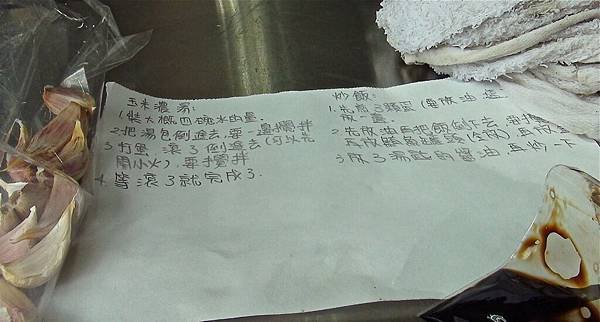 玉米濃湯:
1.裝大概四碗水的量.
2.把湯包倒進去,要一邊攪拌
3.打蛋 滾了倒進去(可以先
開小火),要攪拌
4.等滾了就完成了.
炒飯:
1.先煎3顆蛋(要放油,鹽
放一點.
2.先放油再把飯倒下去
3.放3湯匙的醬油,再炒一下